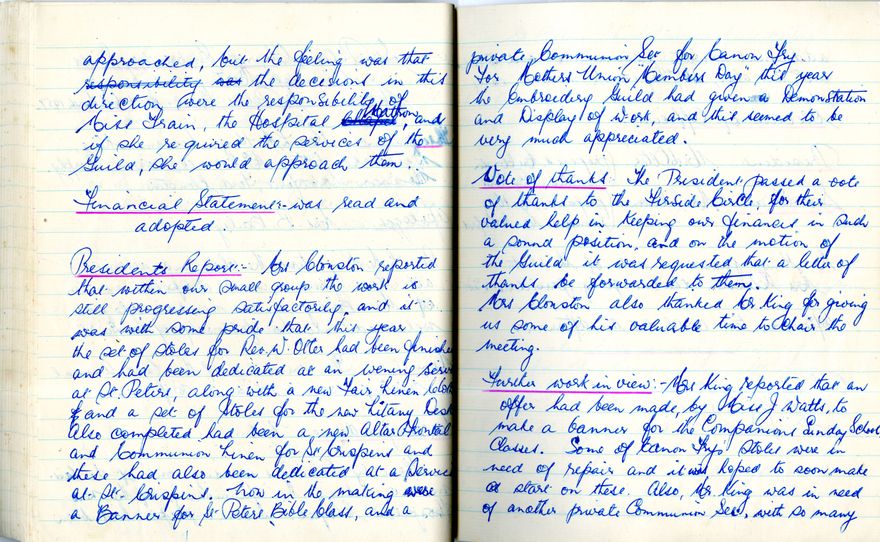 approached, but the feeling was that
responsibility was the decisions in this
direction were the responsibility of
Miss Train, the Hospital Matron, and
if she required the services of the
Guild, she would approach them.
Financial Statement:- was read and
adopted.
Presidents Report:- Mrs Clonston reported
that within our small group the work is
still progressing satisfactorily, and it
was with some pride that this year
the set of stoles for Rev. W. Otter had been finished
and had been dedicated at an evening service
at St. Peters, along with a new Fair Linen Cloth
and a set of Stoles for the new Litany Desk
Also completed had been a new Altar Frontal
and Communion Linen for St Crispens and
these had also been dedicated at a Service
at St. Crispins. Now in the making were
a Banner for St Peters Bible Class, and a
private Communion Set for Canon Fry.
For Mothers Union "Members Day" this year
the Embroidery Guild had given a Demonstation
and Display of work, and this seemed to be
very much appreciated.
Vote of thanks: The President passed a vote
of thanks to the Fireside Circle, for their
valued help in keeping our finances in such
a sound position, and on the motion of
the Guild it was requested that a letter of
thanks be forwarded to them.
Mrs Clonston also thanked Mr King for giving
us some of his valuable time to Chair the
meeting.
Further work in view:- Mrs King reported that an
offer had been made, by Miss J Watts, to
make a banner for the Companions Sunday School
Classes. Some of Canon Frys' Stoles were in
need of repair and it was hoped to soon make
a start on these. Also, Mr. King was in need
of another private Communion Set, with so many